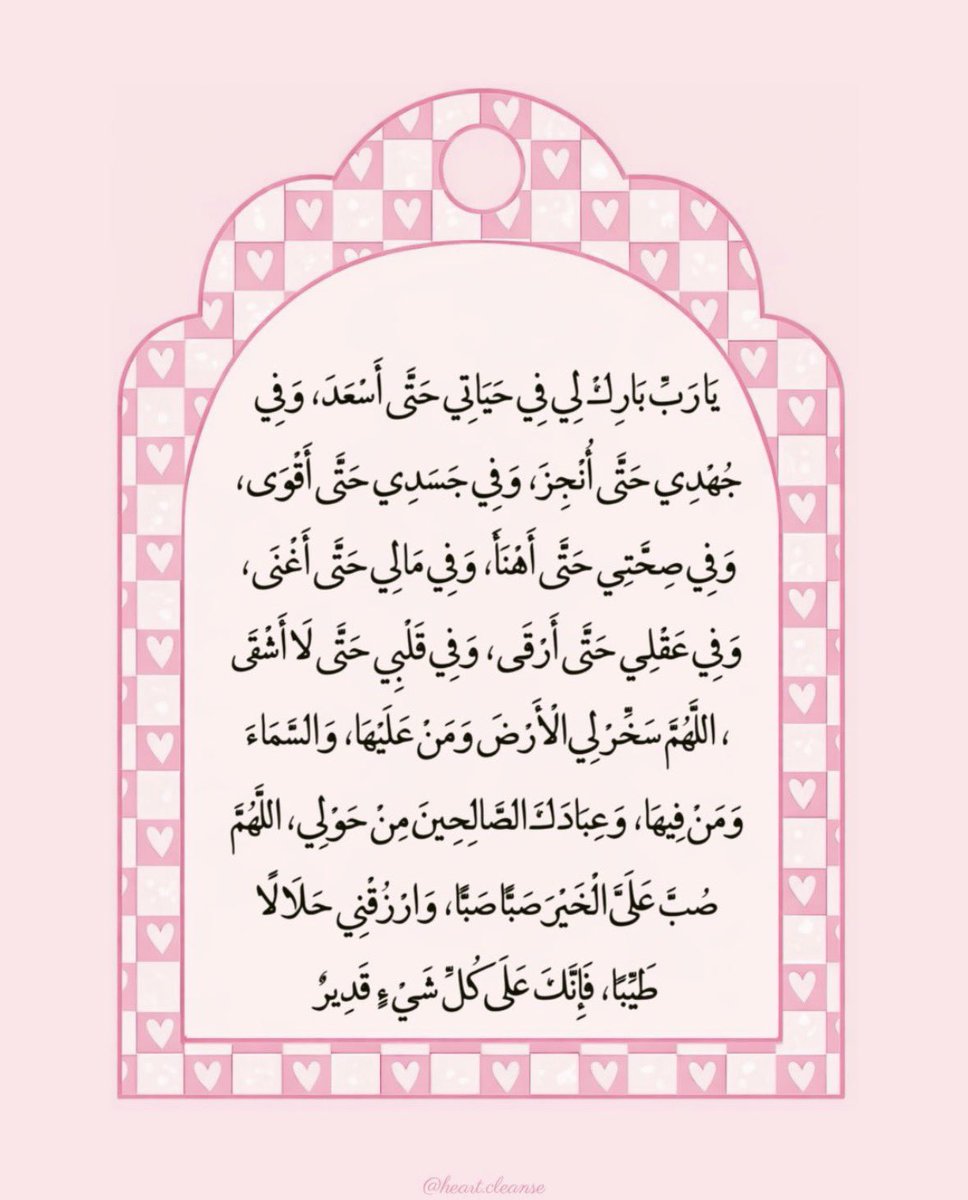 يَا رَبِّ بَارِكْ لِي فِي حَيَاتِي حَتَّى أَسْعَدَ، وَفِي
جُهْدِي حَتَّى أُنْجِزَ، وَفِي جَسَدِي حَتَّى أَقْوَى،
وَفِي صِحَّتِي حَتَّى أَهْنَأَ، وَفِي مَالِي حَتَّى أَغْنَى،
وَفِي عَقْلِي حَتَّى أَرْقَى، وَفِي قَلْبِي حَتَّى لَا أَشْقَى
، اللَّهُمَّ سَخِّرْ لِي الْأَرْضَ وَمَنْ عَلَيْهَا، وَالسَّمَاءَ
وَمَنْ فِيهَا، وَعِبَادَكَ الصَّالِحِينَ مِنْ حَوْلِي، اللَّهُمَّ
صُبَّ عَلَيَّ الْخَيْرَ صَبًّا صَبًّا، وَارْزُقْنِي حَلَالًا
طَيِّبًا، فَإِنَّكَ عَلَى كُلِّ شَيْءٍ قَدِيرٌ
@heart.cleanse